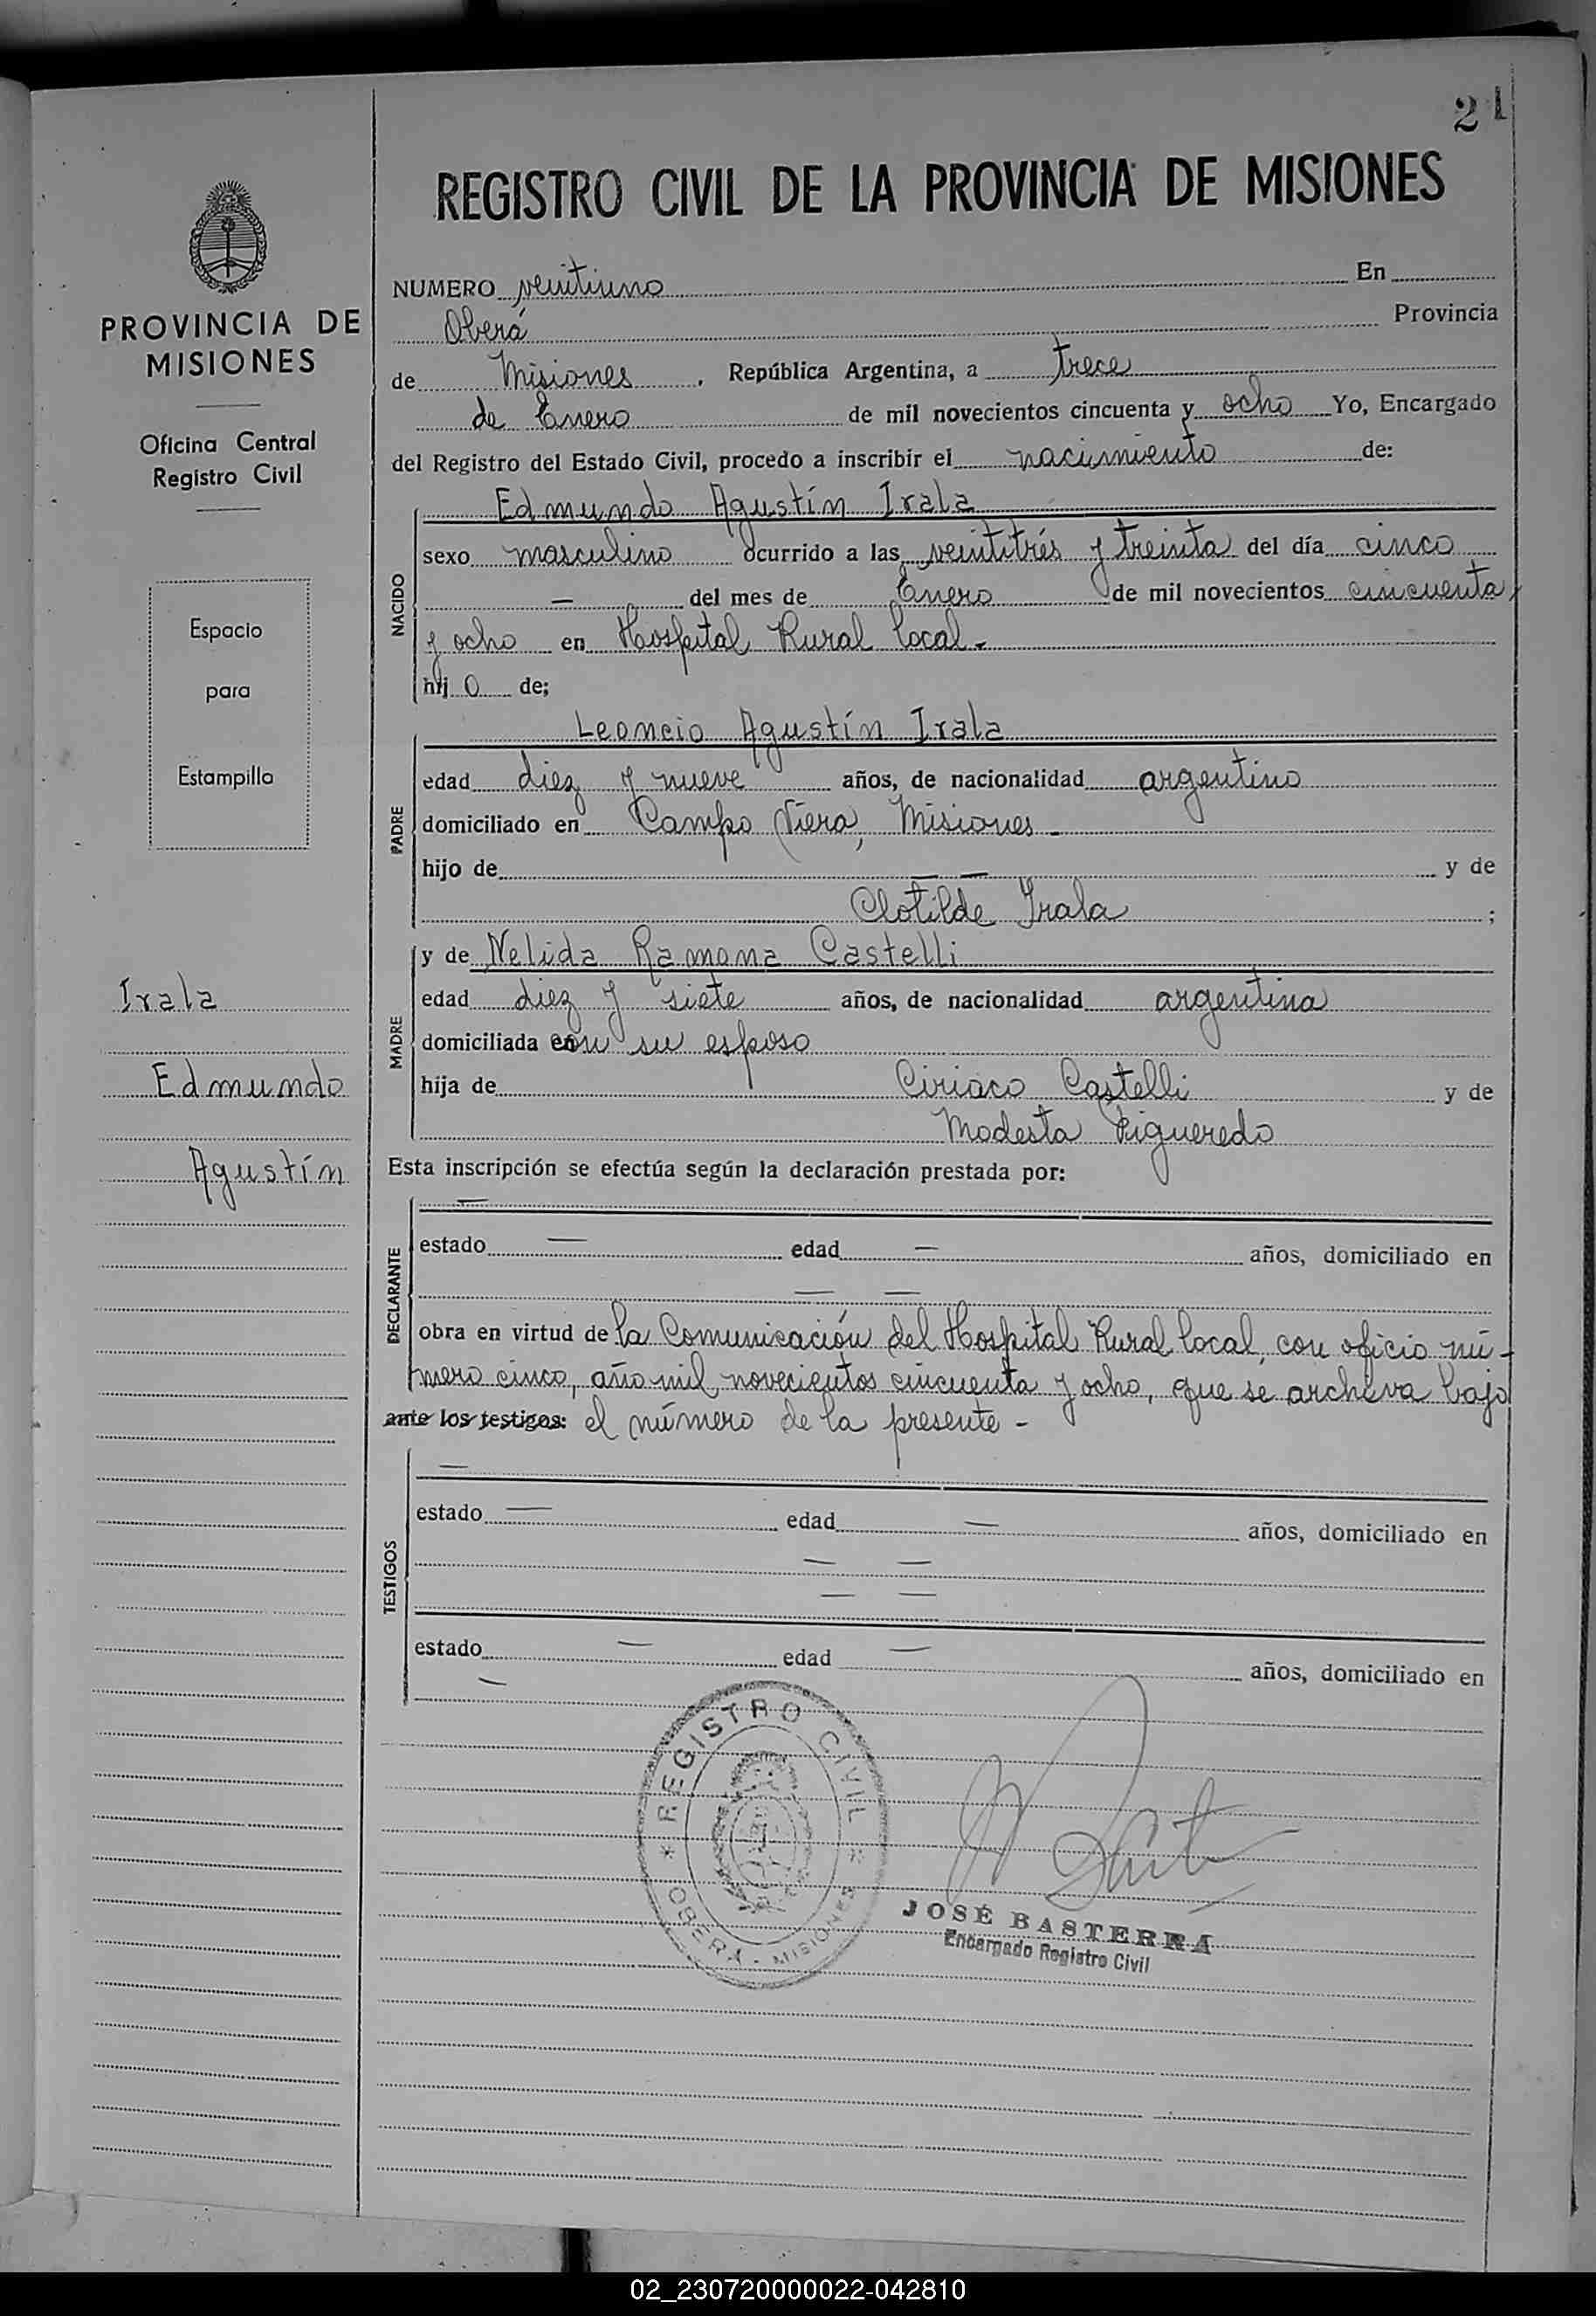 21
REGISTRO CIVIL DE LA PROVINCIA DE MISIONES
PROVINCIA DE
MISIONES
Oficina Central
Registro Civil
Espacio
para
Estampilla
Irala
Edmundo
Agustín
NUMERO veintiuno En
Oberá Provincia
de Misiones, República Argentina, a trece
de Enero de mil novecientos cincuenta y ocho Yo, Encargado
del Registro del Estado Civil, procedo a inscribir el nacimiento de:
NACIDO
Edmundo Agustín Irala
sexo masculino ocurrido a las veintitrés y treinta del día cinco
— del mes de Enero de mil novecientos cincuenta
y ocho en Hospital Rural local.-
hij o de;
PADRE
Leoncio Agustín Irala
edad diez y nueve años, de nacionalidad argentino
domiciliado en Campo Viera, Misiones -
hijo de — — y de
Clotilde Irala ;
MADRE
y de Nelida Ramona Castelli
edad diez y siete años, de nacionalidad argentina
domiciliada con su esposo
hija de Ciriaco Castelli y de
Modesta Figueredo
Esta inscripción se efectúa según la declaración prestada por:
DECLARANTE
—
estado — edad — años, domiciliado en
— —
obra en virtud de la Comunicación del Hospital Rural local, con oficio nú-
mero cinco, año mil novecientos cincuenta y ocho, que se archiva bajo
ante los testigos: el número de la presente -
TESTIGOS
—
estado — edad — años, domiciliado en
— —
— —
estado — edad — años, domiciliado en
—
* REGISTRO CIVIL *
OBERA - MISIONES
JOSÉ BASTERRA
Encargado Registro Civil
02_230720000022-042810